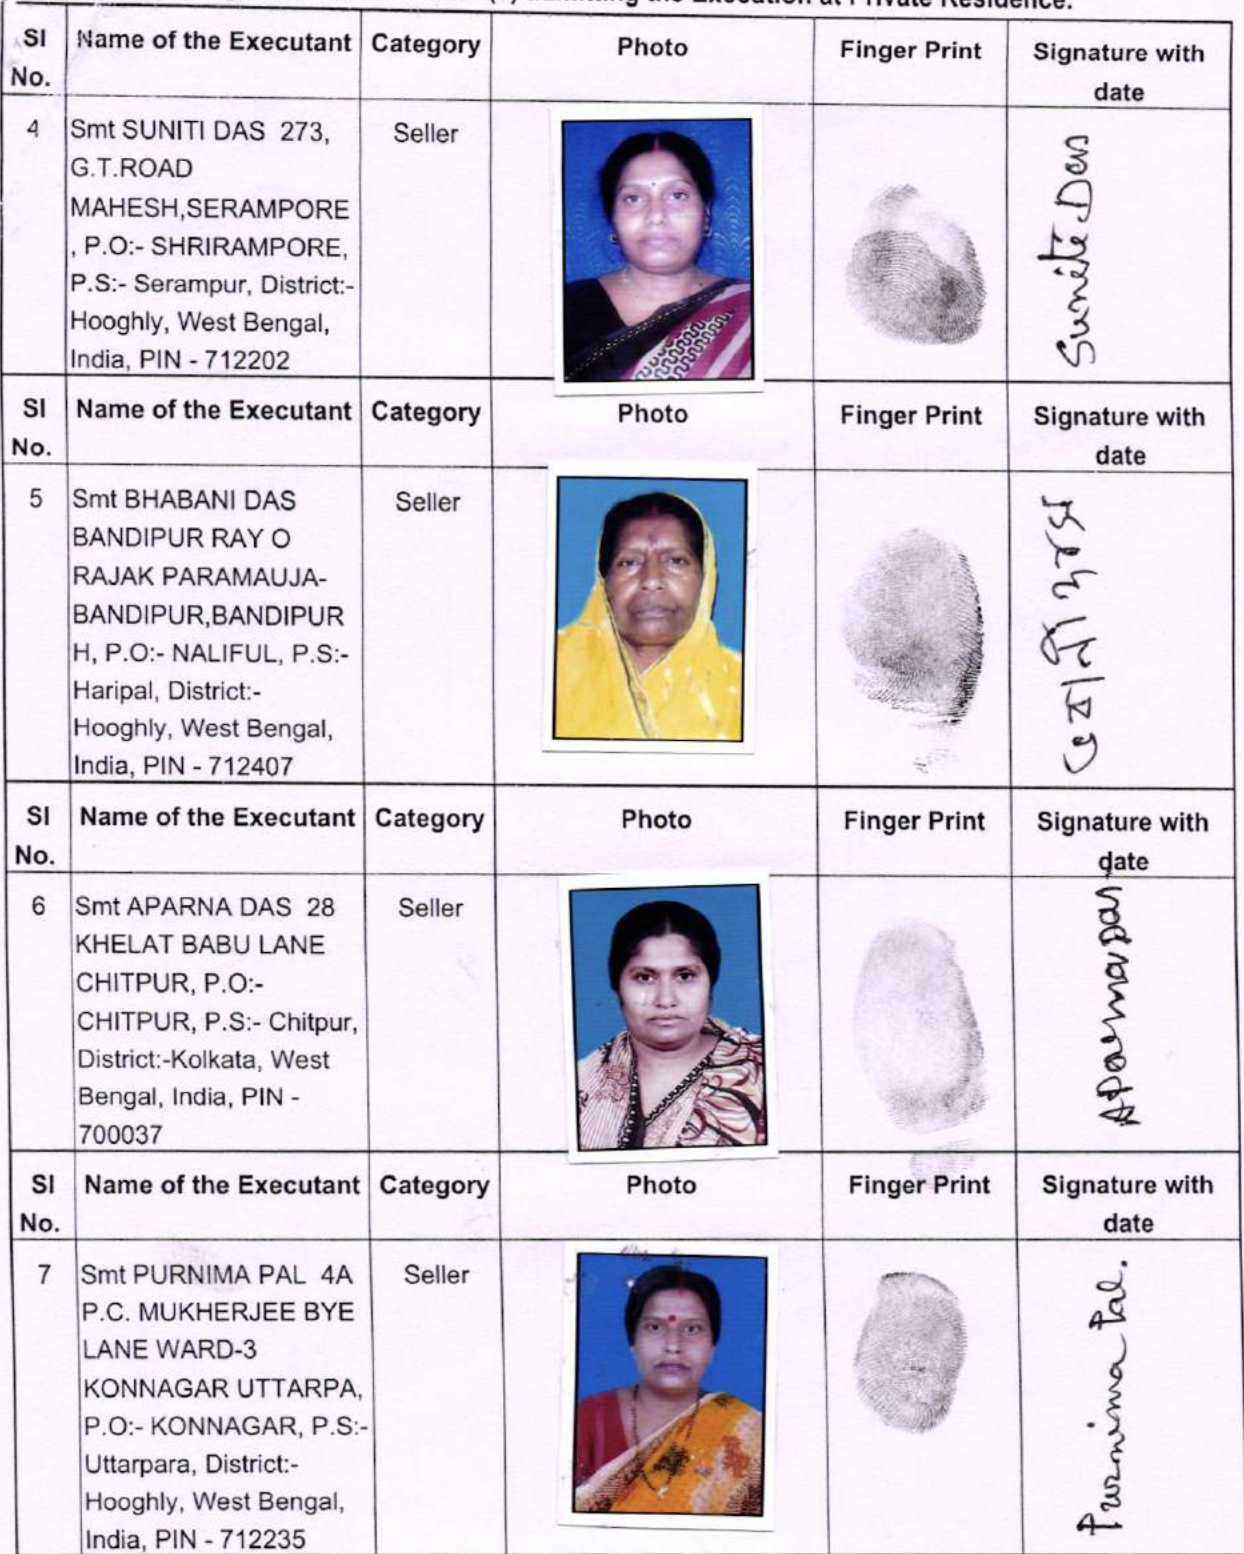 (s) admitting the Execution at Private Residence.
Sl No. Name of the Executant Category Photo Finger Print Signature with date
4 Smt SUNITI DAS 273, Seller
G.T.ROAD
MAHESH,SERAMPORE
, P.O:- SHRIRAMPORE,
P.S:- Serampur, District:-
Hooghly, West Bengal,
India, PIN - 712202
Suniti Das
Sl No. Name of the Executant Category Photo Finger Print Signature with date
5 Smt BHABANI DAS Seller
BANDIPUR RAY O
RAJAK PARAMAUJA-
BANDIPUR,BANDIPUR
H, P.O:- NALIFUL, P.S:-
Haripal, District:-
Hooghly, West Bengal,
India, PIN - 712407
Sl No. Name of the Executant Category Photo Finger Print Signature with date
6 Smt APARNA DAS 28 Seller
KHELAT BABU LANE
CHITPUR, P.O:-
CHITPUR, P.S:- Chitpur,
District:-Kolkata, West
Bengal, India, PIN -
700037
Aparna Das
Sl No. Name of the Executant Category Photo Finger Print Signature with date
7 Smt PURNIMA PAL 4A Seller
P.C. MUKHERJEE BYE
LANE WARD-3
KONNAGAR UTTARPA,
P.O:- KONNAGAR, P.S:-
Uttarpara, District:-
Hooghly, West Bengal,
India, PIN - 712235
Purnima Pal.